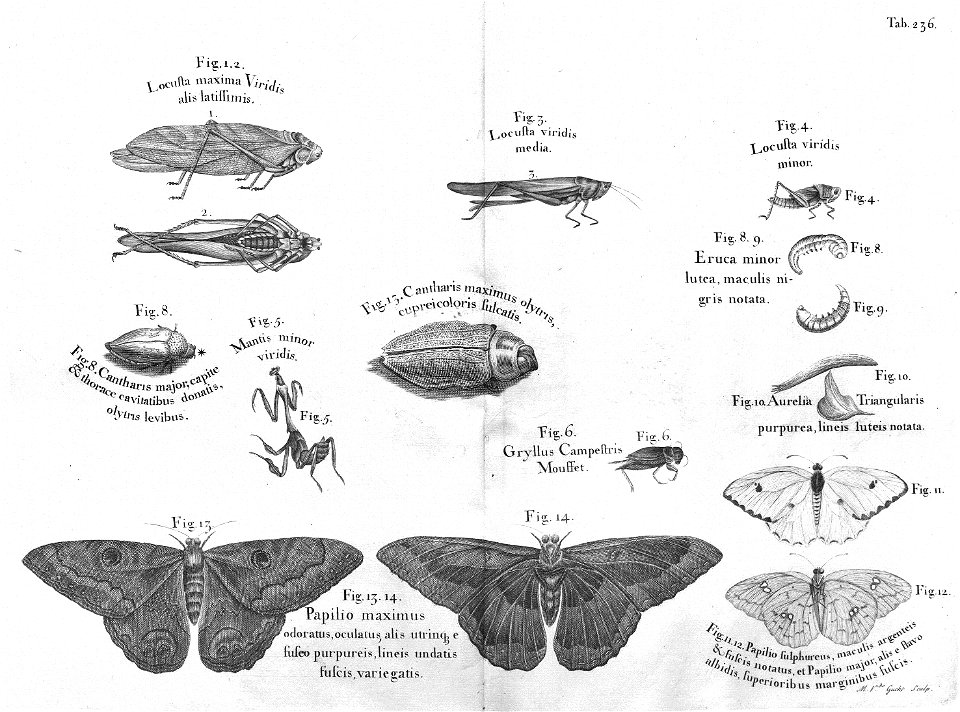 Tab. 236.
Fig. 1, 2.
Locuſta maxima Viridis
alis latiſſimis.
1.
2.
Fig. 3.
Locuſta viridis
media.
3.
Fig. 4.
Locuſta viridis
minor.
Fig. 4.
Fig. 8. 9.
Eruca minor
lutea, maculis ni-
gris notata.
Fig. 8.
Fig. 9.
Fig. 8.
Fig. 8. Cantharis major, capite
& thorace cavitatibus donatis,
olytris levibus.
Fig. 5.
Mantis minor
viridis.
Fig. 5.
Fig. 13. Cantharis maximus olytris,
cupreicoloris ſulcatis.
Fig. 10.
Fig. 10. Aurelia Triangularis
purpurea, lineis luteis notata.
Fig. 6.
Gryllus Campeſtris
Mouffet.
Fig. 6.
Fig. 11.
Fig. 13
Fig. 14.
Fig. 13. 14.
Papilio maximus
odoratus, oculatus, alis utrinq, e
fuſco purpureis, lineis undatis
fuſcis, variegatis.
Fig. 12.
Fig. 11. 12. Papilio ſulphureus, maculis argenteis
& fuſcis notatus, et Papilio major, alis e flavo
albidis, ſuperioribus marginibus fuſcis.
M. Vdr Gucht Sculp.